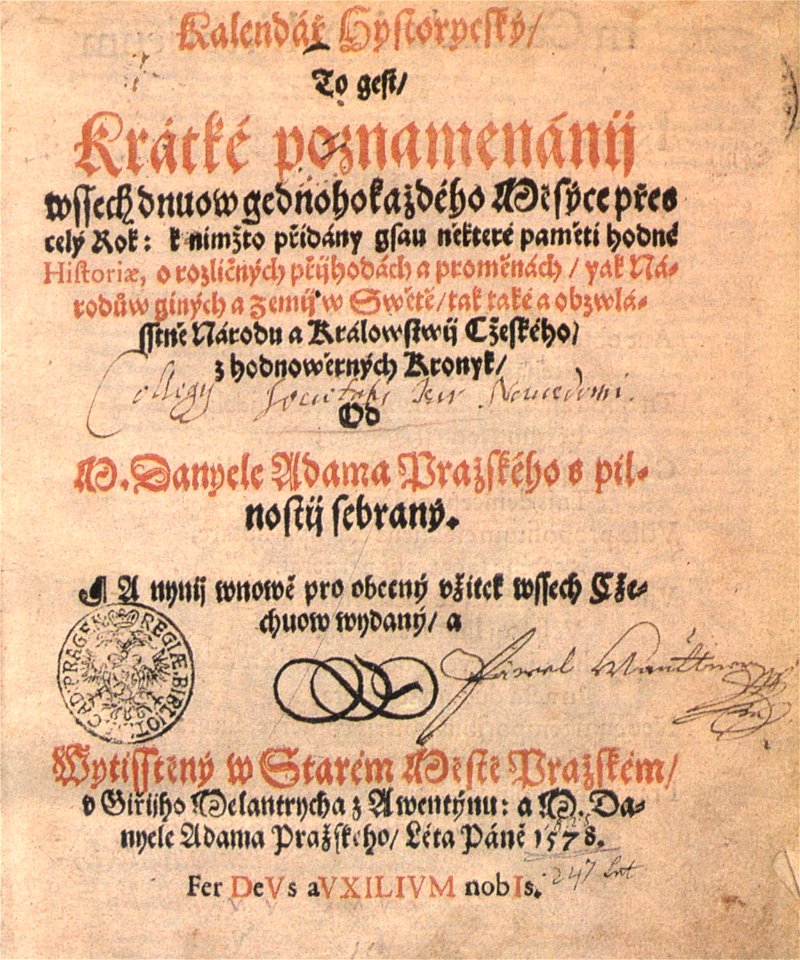 Kalendář Hystorycský/
To gest/
Krátké poznamenánij
wssech dnuow gednohokaždého Měsýce přes
celý Rok: k nimžto přidány gsau některé paměti hodné
Historiæ, o rozličných přijhodách a proměnách / yak Ná-
rodůw giných a Zemij w Swětě/ tak také a obzwlá-
sstně Národu a Králowstwij Cžeského/
z hodnowěrných Kronyk/
Collegij Societatis
Od
M. Danyele Adama Pražského s pil-
nostij sebraný.
¶ A nynij wnowě pro obecný vžitek wssech Cže-
chuow wydaný/ a
REGIÆ BIBLIOT. CAD. PRAGEN
Pawel
Wytisstěný w Starém Městě Pražském/
v Giřijho Melantrycha z Awentýnu: a M. Da-
nyele Adama Pražského/ Léta Páně 1578.
247 let
Fer DeVs aVXILIVM nobIs.